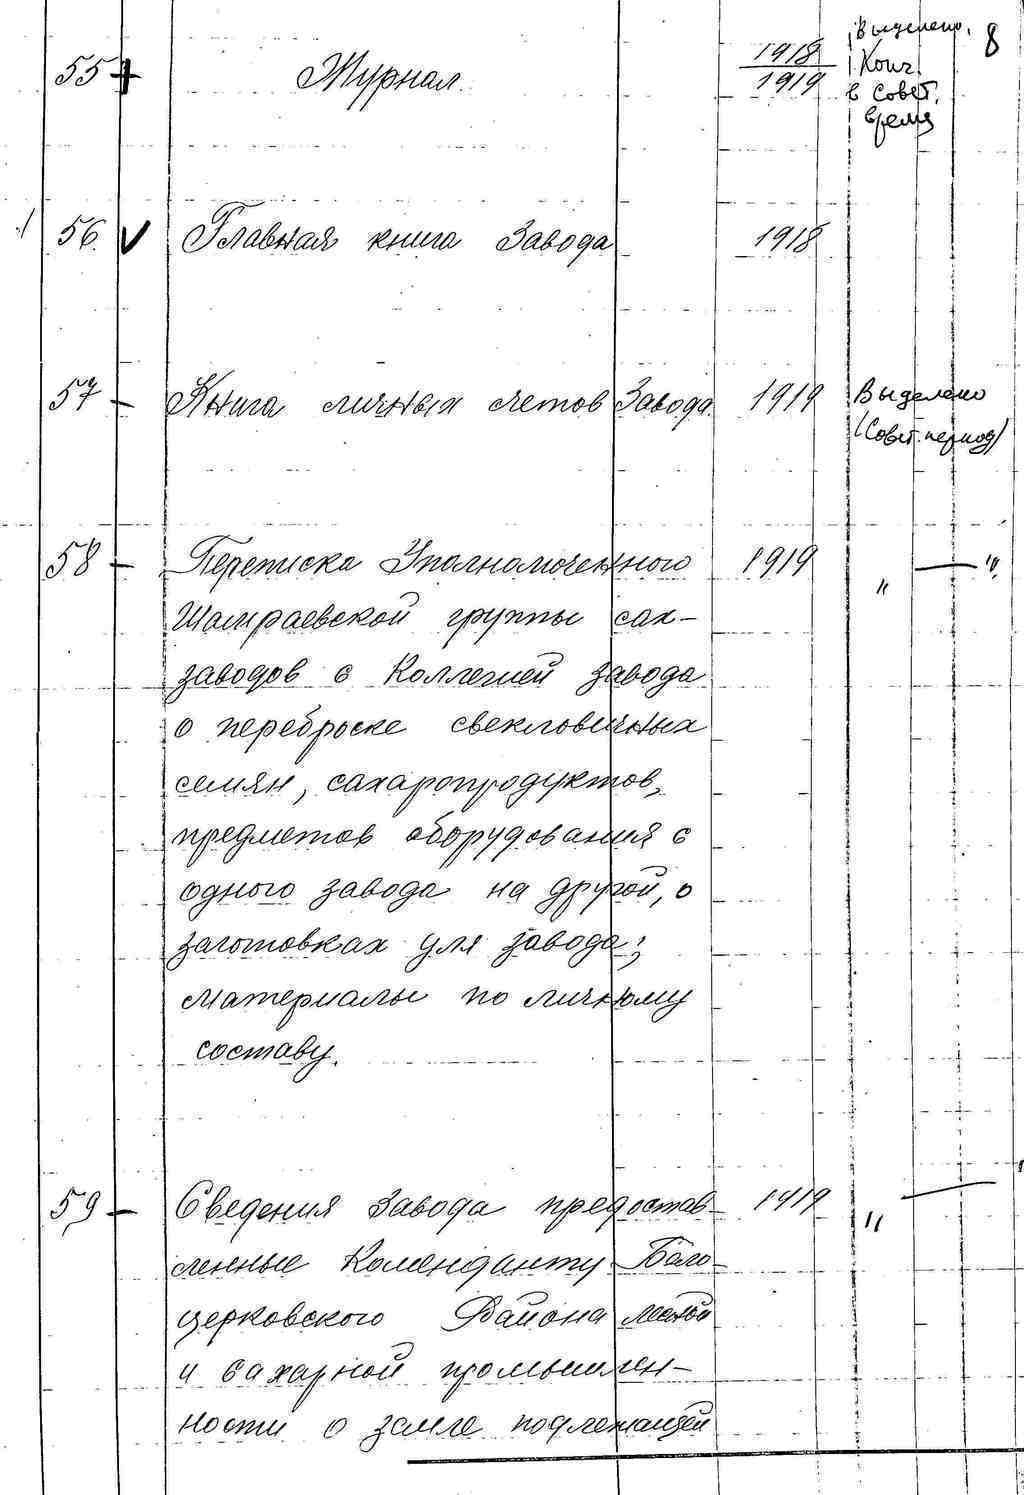 8
55 + Журнал 1918 Выделено.
1919 Конч.
в Совет.
время
56 V Главная книга Завода 1918
57 – Книга личных счетов Завода 1919 Выделено
(Совет. период)
58 – Переписка Уполномоченного 1919 " — "
Шамраевской группы сах-
заводов с Коллегией завода
о переброске свекловичных
семян, сахаропродуктов,
предметов оборудования с
одного завода на другой, о
заготовках для завода;
материалы по личному
составу.
59 – Сведения Завода предостав- 1919 " —
ленные Коменданту Бело-
церковского Района
и сахарной промышлен-
ности о земле подлежащей